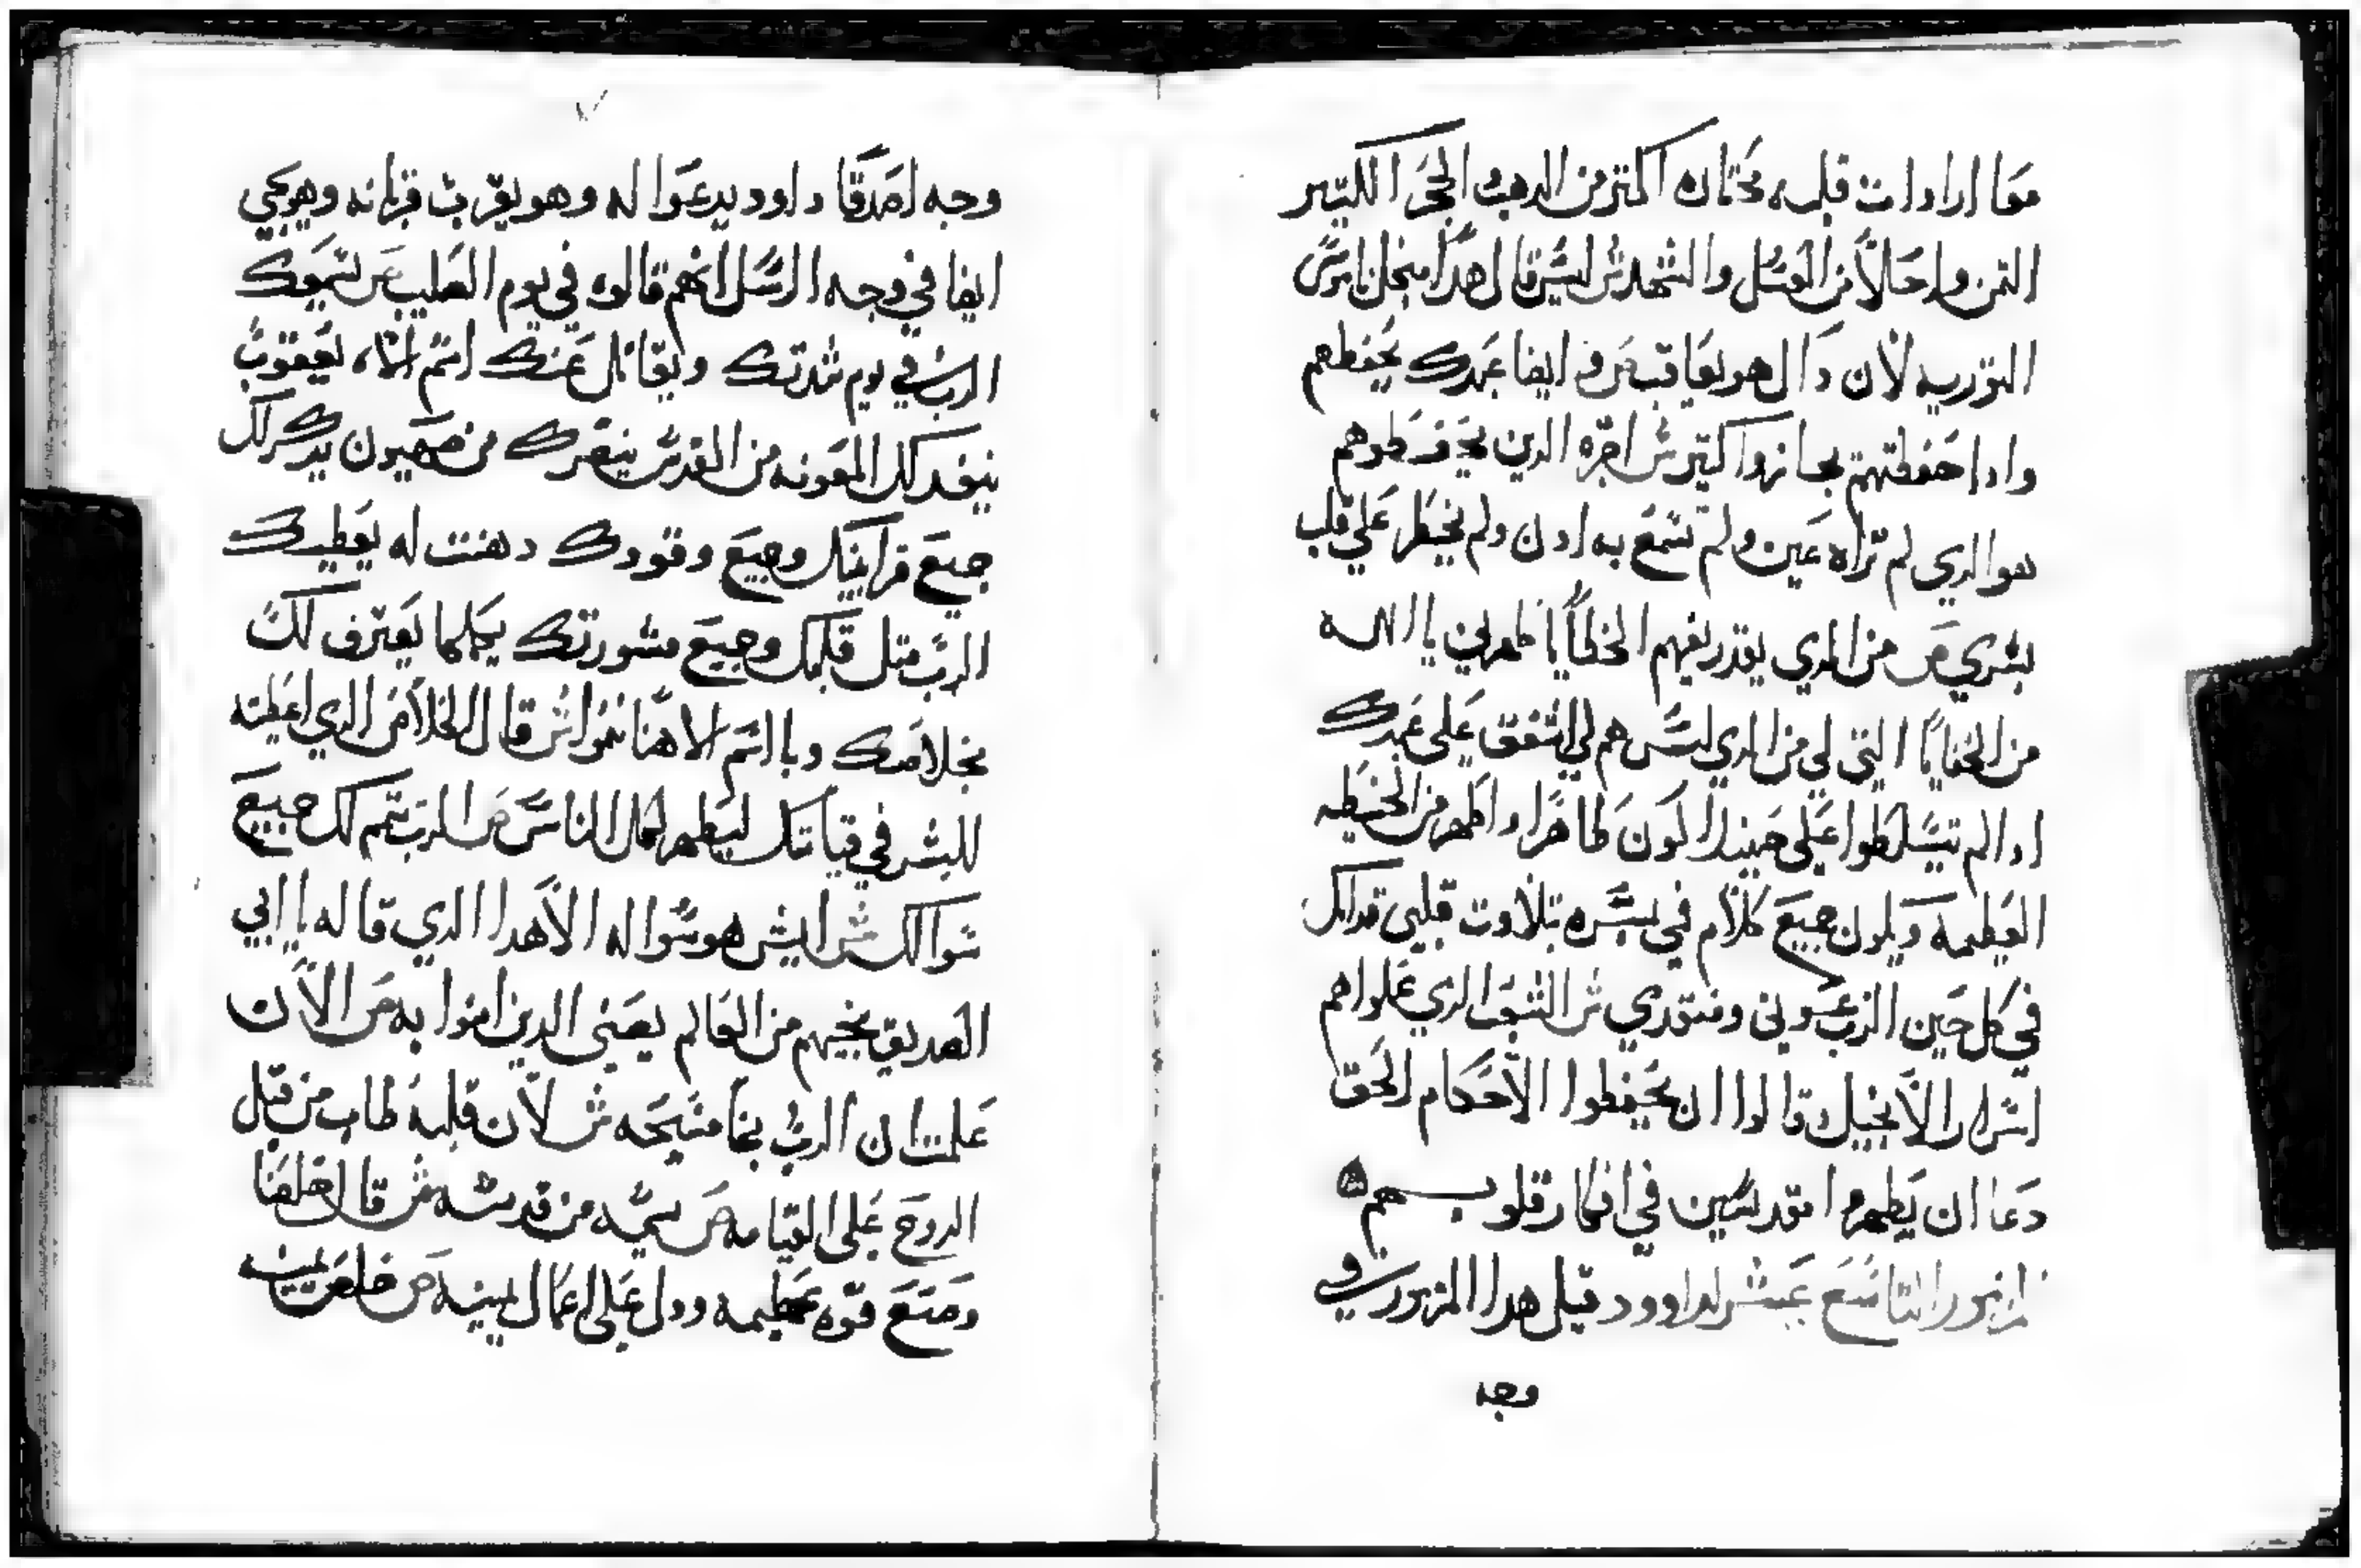 معا ارادات قلبه مختاره اكتر من الدهب والحجر الكتير
التمن واحلا من العسل والشهد ش ليش قال هدا من اجل ناموس
التوريه لان دا ال هو يعاقب ص ايضا عبدك يحفظهم
وادا حفظتهم يجازوا كتير ش اجره الدين يحفظوهم
هوا الدي لم تراه عين ولم تسمع به ادن ولم يخطر علي قلب
بشري ص من الدي يقدر يفهم الخطايا طهرني يا الله
من الخفايا التي لي من الدي ليس هم لي اشفق علي عبدك
ادا لم تيسلطوا علي حينيدا اكون طاهرا واطهر من الخطيه
العظيمه ويكون جميع كلام في بمسره تلاوت قلبي قدامك
في كل حين الرب عوني ومنقدي ش الشعب الدي علواهم
اسرار الانجيل قالوا ان يحفظوا الاحكام الحق
دعا ان يطهروا متقدسين في افكار قلوبهم
المزمور التاسع عشر لداوود قيل هدا المزمور في
وجه
وجه اصدقا داود يدعوا له وهو يقرب قربانه وهو يجي
ايضا في وجه الرسل انهم قالوه في يوم الصليب ص يسمعك
الرب في يوم شدتك ويقاتل عنك اسم الاه يعقوب
ينفد لك المعونه من القدس ينصرك من صهيون يدكر لك
جميع قرابينك وجميع وقودك دهنت له يعطيك
الرب متل قلبك وجميع مشورتك يكملها يعترف لك
بخلاصك وبااسم الاهنا ننموا ش قال الخلاص الدي اعطيته
للبشر في قيامتك ليظهر لكل الناس ص الرب يتمم لك جميع
سوالك ش ايش هو سواله الا هدا الدي قاله يا ابي
الصديق نجيهم من العالم يعني الدين امنوا به ص الان
علمت ان الرب نجا مسيحه ش لان قلبه طاب من قبل
الروح علي القيامه ص سميه من قدسه ش قال لخلصنا
وصنع قوه عظيمه وودل علي اعمال يمينه ص خلص يمينه